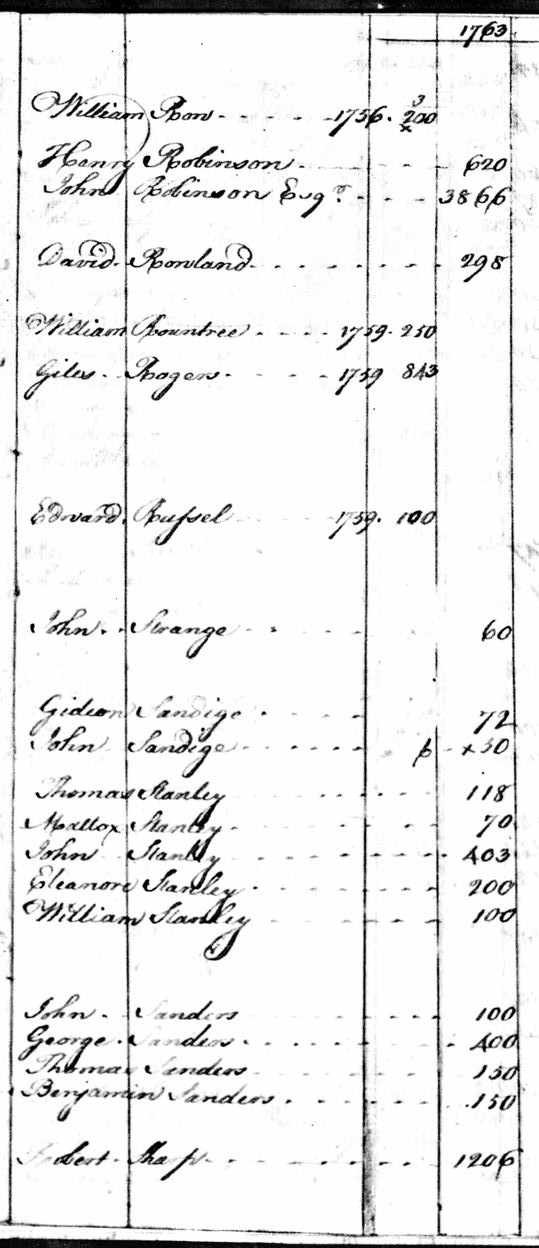 1763
William Row - - - - - 1756. 200
3
x
Henry Robinson - - - - - 620
John Robinson Esqr. - - - 3866
David Rowland - - - - - 298
William Rountree - - - - 1759. 250
Giles Rogers - - - - 1759 843
Edward Russel - - - - 1759. 100
John Strange - - - - 60
Gideon Sandige - - - - 72
John Sandige - - - - - - x 50
Thomas Stanley - - - - 118
Mattox Stanley - - - - 70
John Stanley - - - - - 403
Eleanore Stanley - - - - 200
William Stanley - - - - 100
John Sanders - - - - 100
George Sanders - - - - 400
Thomas Sanders - - - - 150
Benjamin Sanders - - - - 150
Robert Sharp - - - - - 1206